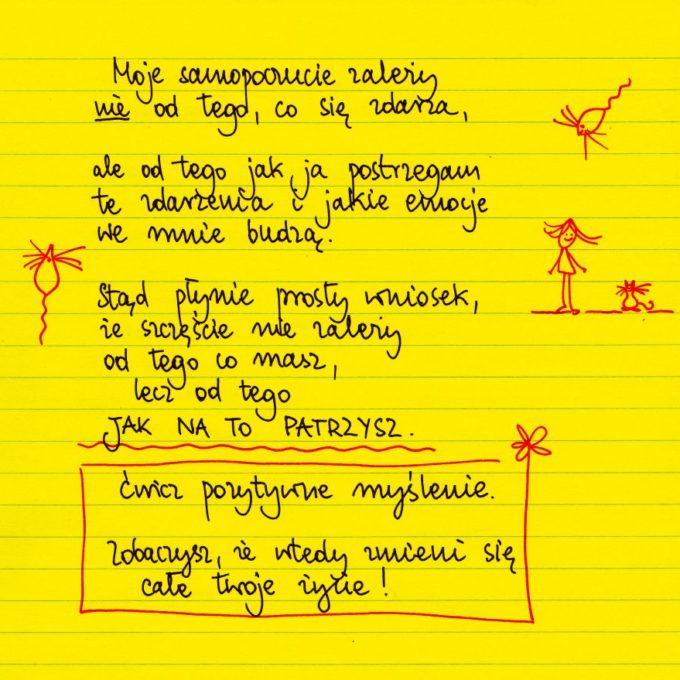 Moje samopoczucie zależy
nie od tego, co się zdarza,
ale od tego jak ja postrzegam
te zdarzenia i jakie emocje
we mnie budzą.
Stąd płynie prosty wniosek,
że szczęście nie zależy
od tego co masz,
lecz od tego
JAK NA TO PATRZYSZ.
Ćwicz pozytywne myślenie.
Zobaczysz, że wtedy zmieni się
całe twoje życie!